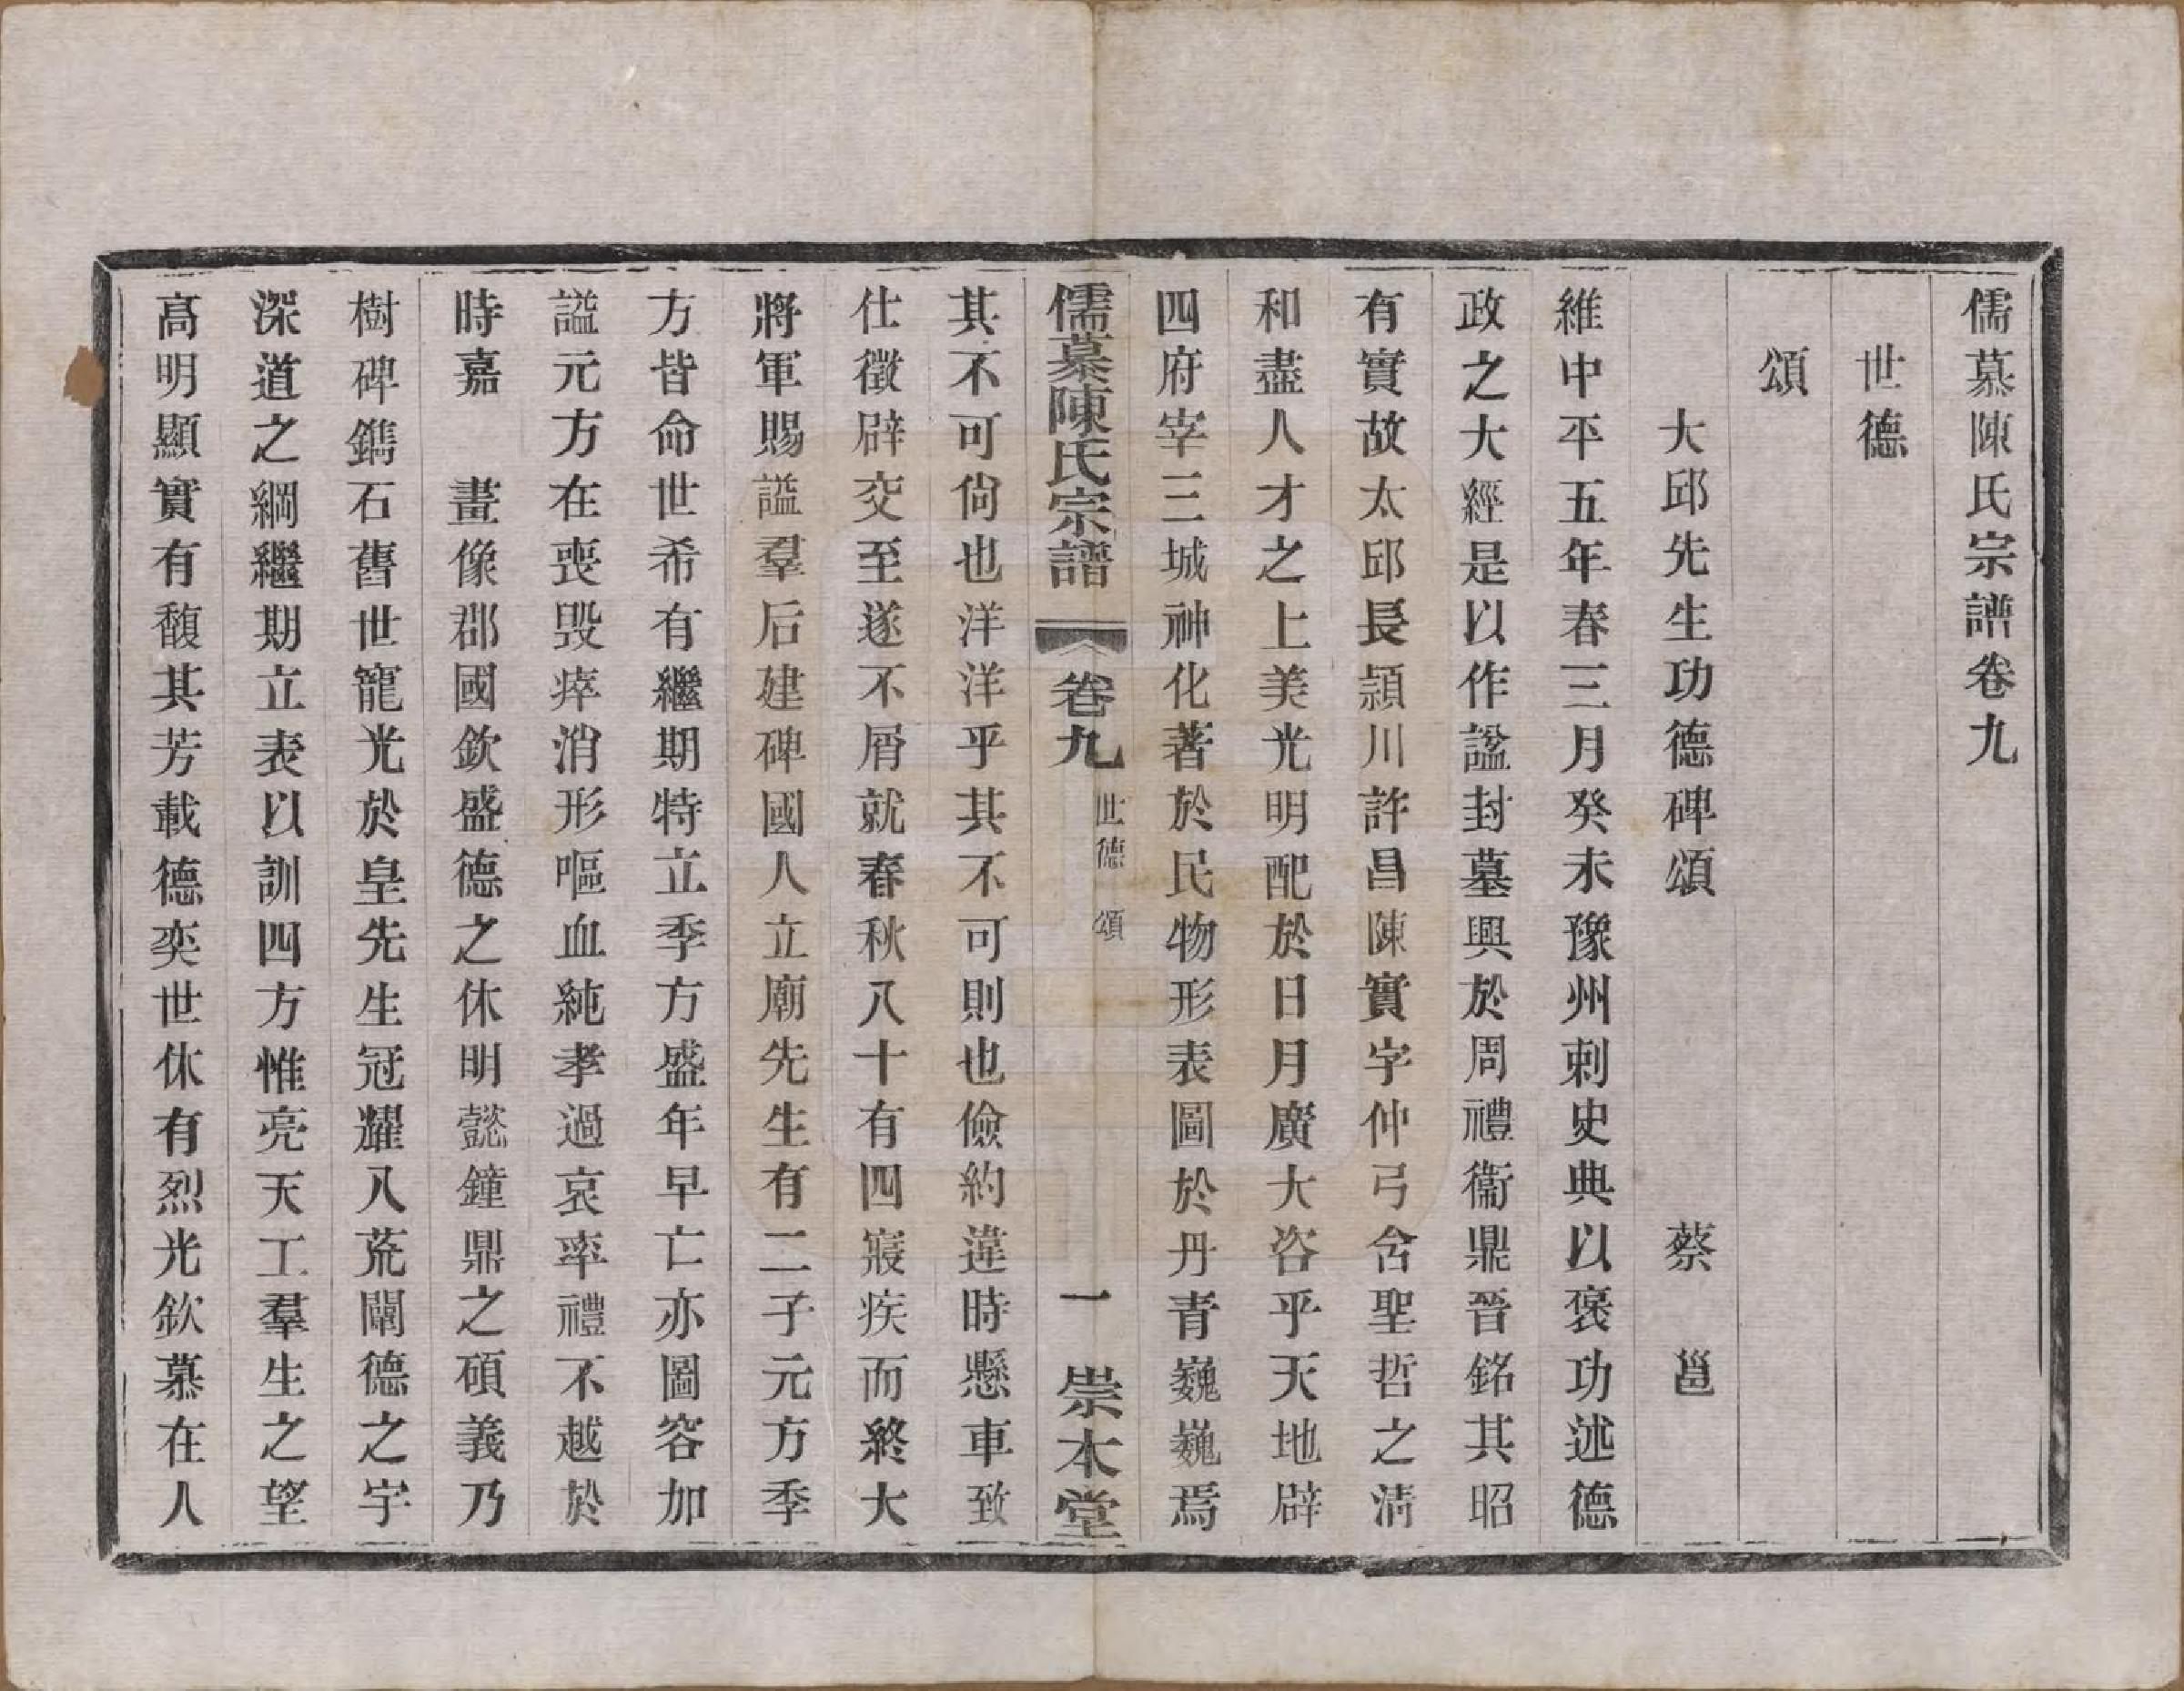 儒慕陳氏宗譜卷九
世德
頌
大邱先生功德碑頌　蔡邕
維中平五年春三月癸未豫州刺史典以褒功述德
政之大經是以作諡封墓興於周禮衞鼎晉銘其昭
有實故太邱長潁川許昌陳實字仲弓含聖哲之淸
和盡人才之上美光明配於日月廣大咨乎天地辟
四府宰三城神化著於民物形表圖於丹青巍巍焉
儒慕陳氏宗譜　卷九　世德　頌　一　崇本堂
其不可尙也洋洋乎其不可則也儉約違時懸車致
仕徵辟交至遂不屑就春秋八十有四寢疾而終大
將軍賜諡羣后建碑國人立廟先生有二子元方季
方皆命世希有繼期特立季方盛年早亡亦圖容加
諡元方在喪毁瘁消形嘔血純孝過哀率禮不越於
時嘉　畫像郡國欽盛德之休明懿鐘鼎之碩義乃
樹碑鐫石舊世寵光於皇先生冠耀八荒闡德之宇
深道之綱繼期立表以訓四方惟亮天工羣生之望
高明顯實有馥其芳載德奕世休有烈光欽慕在人